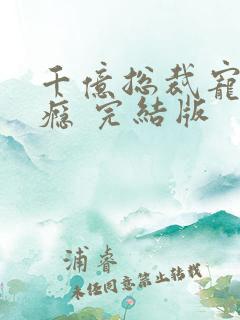 千億总裁寵
癮 完結版
浦睿
未经同意禁止转载